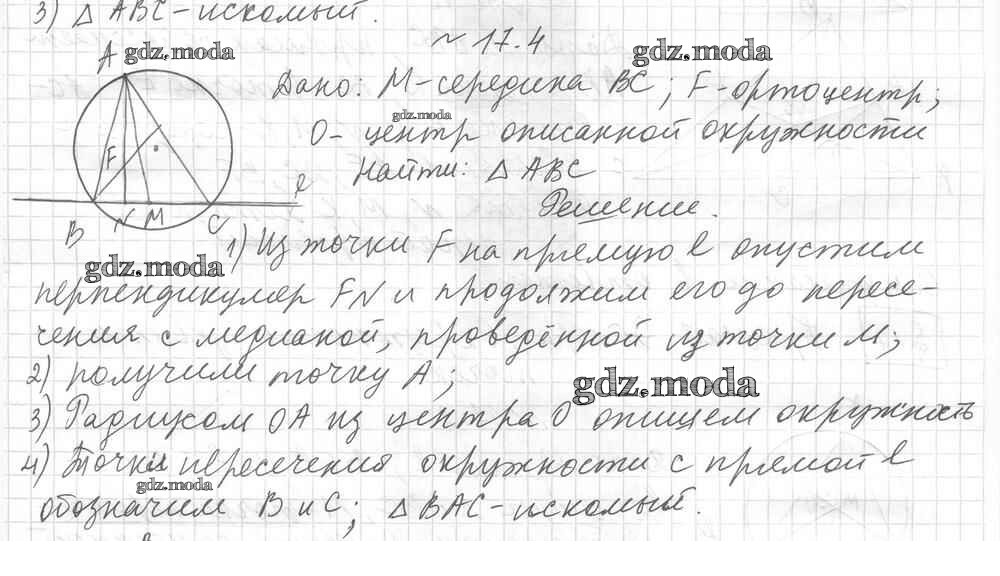 3) △ ABC - искомый.
~ 17.4
A gdz.moda gdz.moda
Дано: M - середина BC; F - ортоцентр;
gdz.moda
O - центр описанной окружности
Найти: △ ABC
F
ℓ
Решение.
B N M C
1) Из точки F на прямую ℓ опустим
gdz.moda
перпендикуляр FN и продолжим его до пересе-
чения с медианой, проведённой из точки M;
2) получили точку A;
gdz.moda
3) Радиусом OA из центра O опишем окружность
4) Точки пересечения окружности с прямой ℓ
gdz.moda
обозначим B и C; △ BAC - искомый.